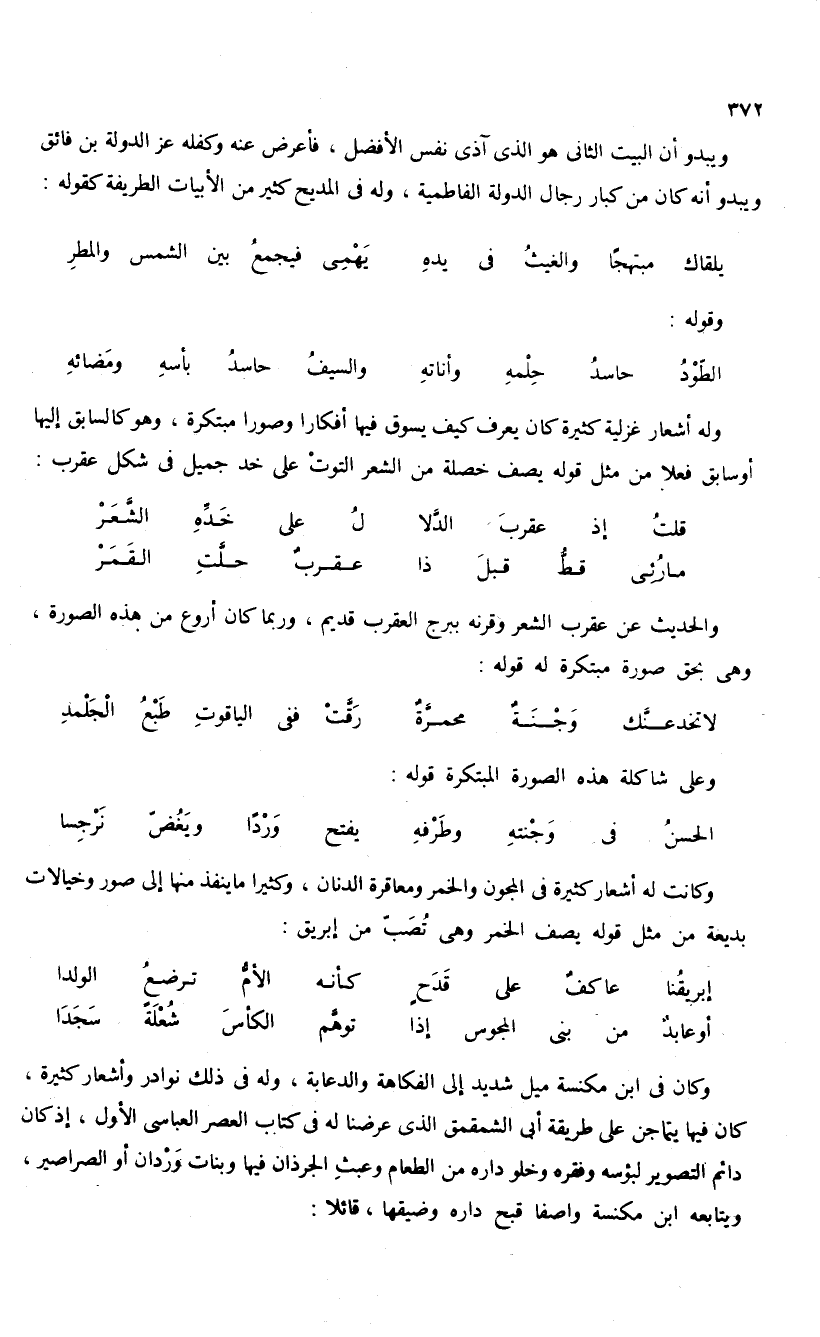 ٣٧٢
ويبدو أن البيت الثانى هو الذى آذى نفس الأفضل ، فأعرض عنه وكفله عز الدولة بن فائق
ويبدو أنه كان من كبار رجال الدولة الفاطمية ، وله فى المديح كثير من الأبيات الطريفة كقوله :
يلقاك مبتهجًا والغيثُ فى يدهِ يَهْمِى فيجمعُ بين الشمس والمطرِ
وقوله :
الطّوْدُ حاسدُ حِلْمهِ وأناتهِ والسيفُ حاسدُ بأسهِ ومَضائهِ
وله أشعار غزلية كثيرة كان يعرف كيف يسوق فيها أفكارا وصورا مبتكرة ، وهو كالسابق إليها
أوسابق فعلا من مثل قوله يصف خصلة من الشعر التوتْ على خد جميل فى شكل عقرب :
قلتُ إذ عقربَ الدَّلا لُ على خَدِّهِ الشَّعَرْ
مارُئِى قطُّ قبلَ ذا عقربٌ حلَّتِ القَمَرْ
والحديث عن عقرب الشعر وقرنه ببرج العقرب قديم ، وربما كان أروع من هذه الصورة ،
وهى بحق صورة مبتكرة له قوله :
لاتخدعنَّك وَجْنَةٌ محمرَّةٌ رَقَّتْ ففى الياقوتِ طَبْعُ الْجَلْمدِ
وعلى شاكلة هذه الصورة المبتكرة قوله :
الحسنُ فى وَجْنتهِ وطَرْفهِ يفتح وَرْدًا ويَغُضّ نَرْجِسا
وكانت له أشعار كثيرة فى المجون والخمر ومعاقرة الدنان ، وكثيرا ماينفذ منها إلى صور وخيالات
بديعة من مثل قوله يصف الخمر وهى تُصَبّ من إبريق :
إبريقُنا عاكفٌ على قَدَحٍ كأنه الأمُّ ترضعُ الولدا
أوعابدٌ من بنى المجوس إذا توهَّم الكأسَ شُعْلَةً سَجَدَا
وكان فى ابن مكنسة ميل شديد إلى الفكاهة والدعابة ، وله فى ذلك نوادر وأشعار كثيرة ،
كان فيها يتماجن على طريقة أبى الشمقمق الذى عرضنا له فى كتاب العصر العباسى الأول ، إذ كان
دائم التصوير لبؤسه وفقره وخلو داره من الطعام وعبثِ الجرذان فيها وبنات وَرْدان أو الصراصير ،
ويتابعه ابن مكنسة واصفا قبح داره وضيقها ، قائلا :